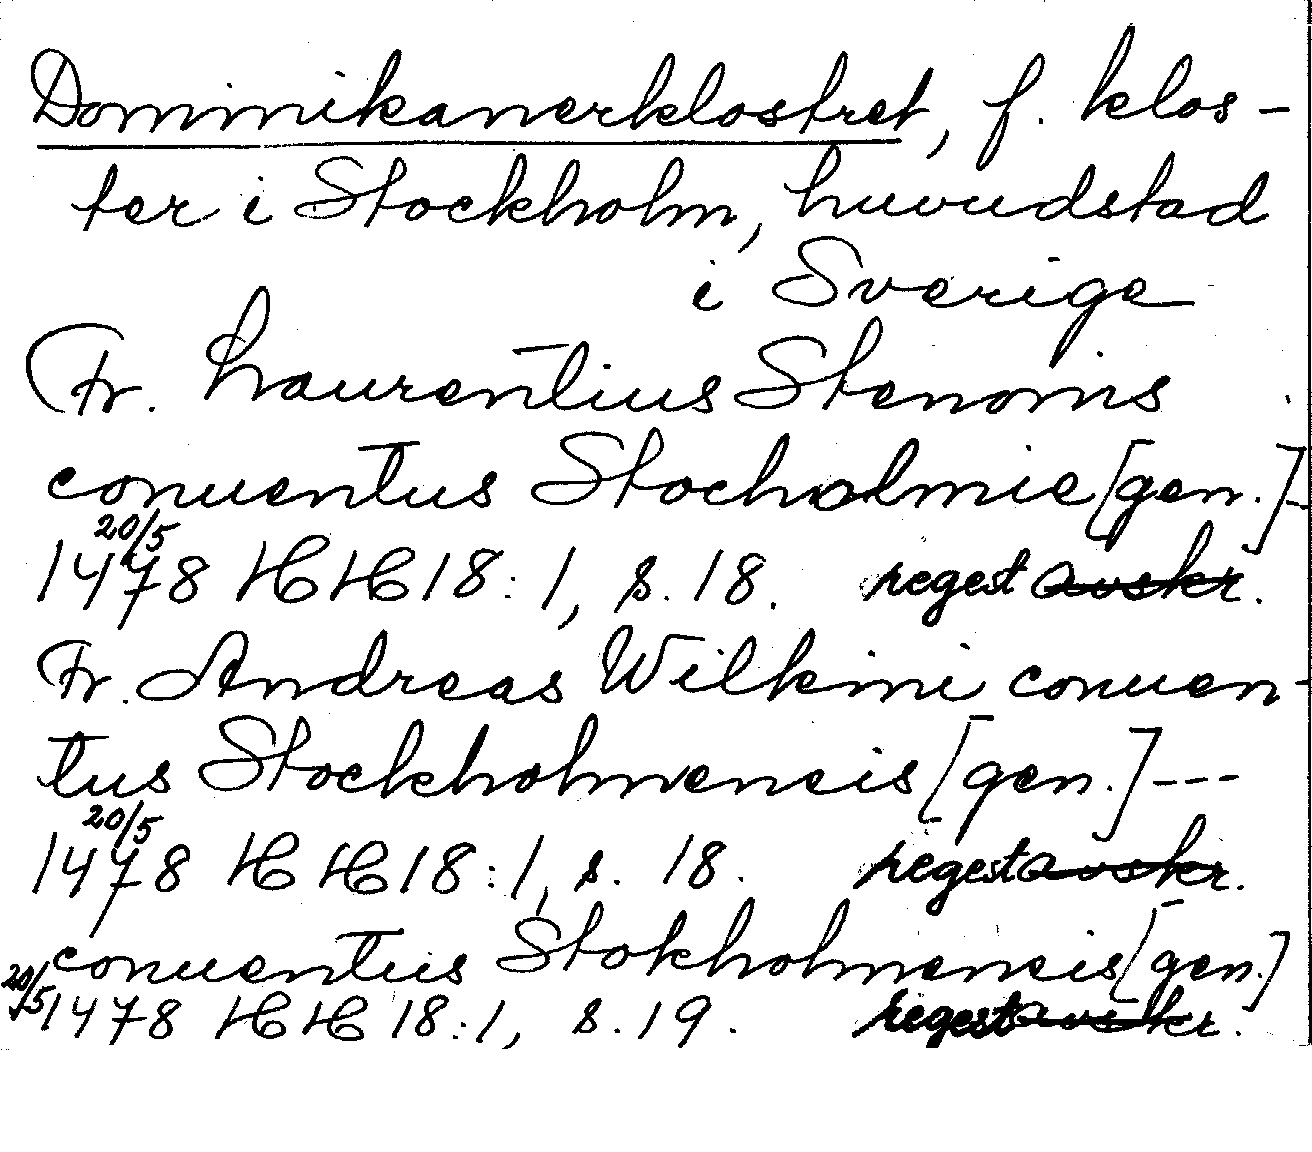 Dominikanerklostret, f. klos-
ter i Stockholm, huvudstad
i Sverige
Fr. Laurentius Stenonis
conuentus Stocholmie [gen.]-
20/5
1478 HH 18:1, s. 18. regest avskr.
Fr. Andreas Wilkini conuen-
tus Stockholmensis [gen.]---
20/5
1478 HH 18:1, s. 18. regest avskr.
conuentus Stokholmensis [gen.]
20/5 1478 HH 18:1, s. 19. regest avskr.